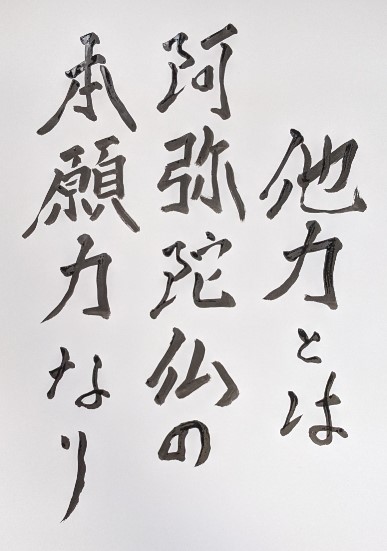 他力とは
阿弥陀仏の
本願力なり